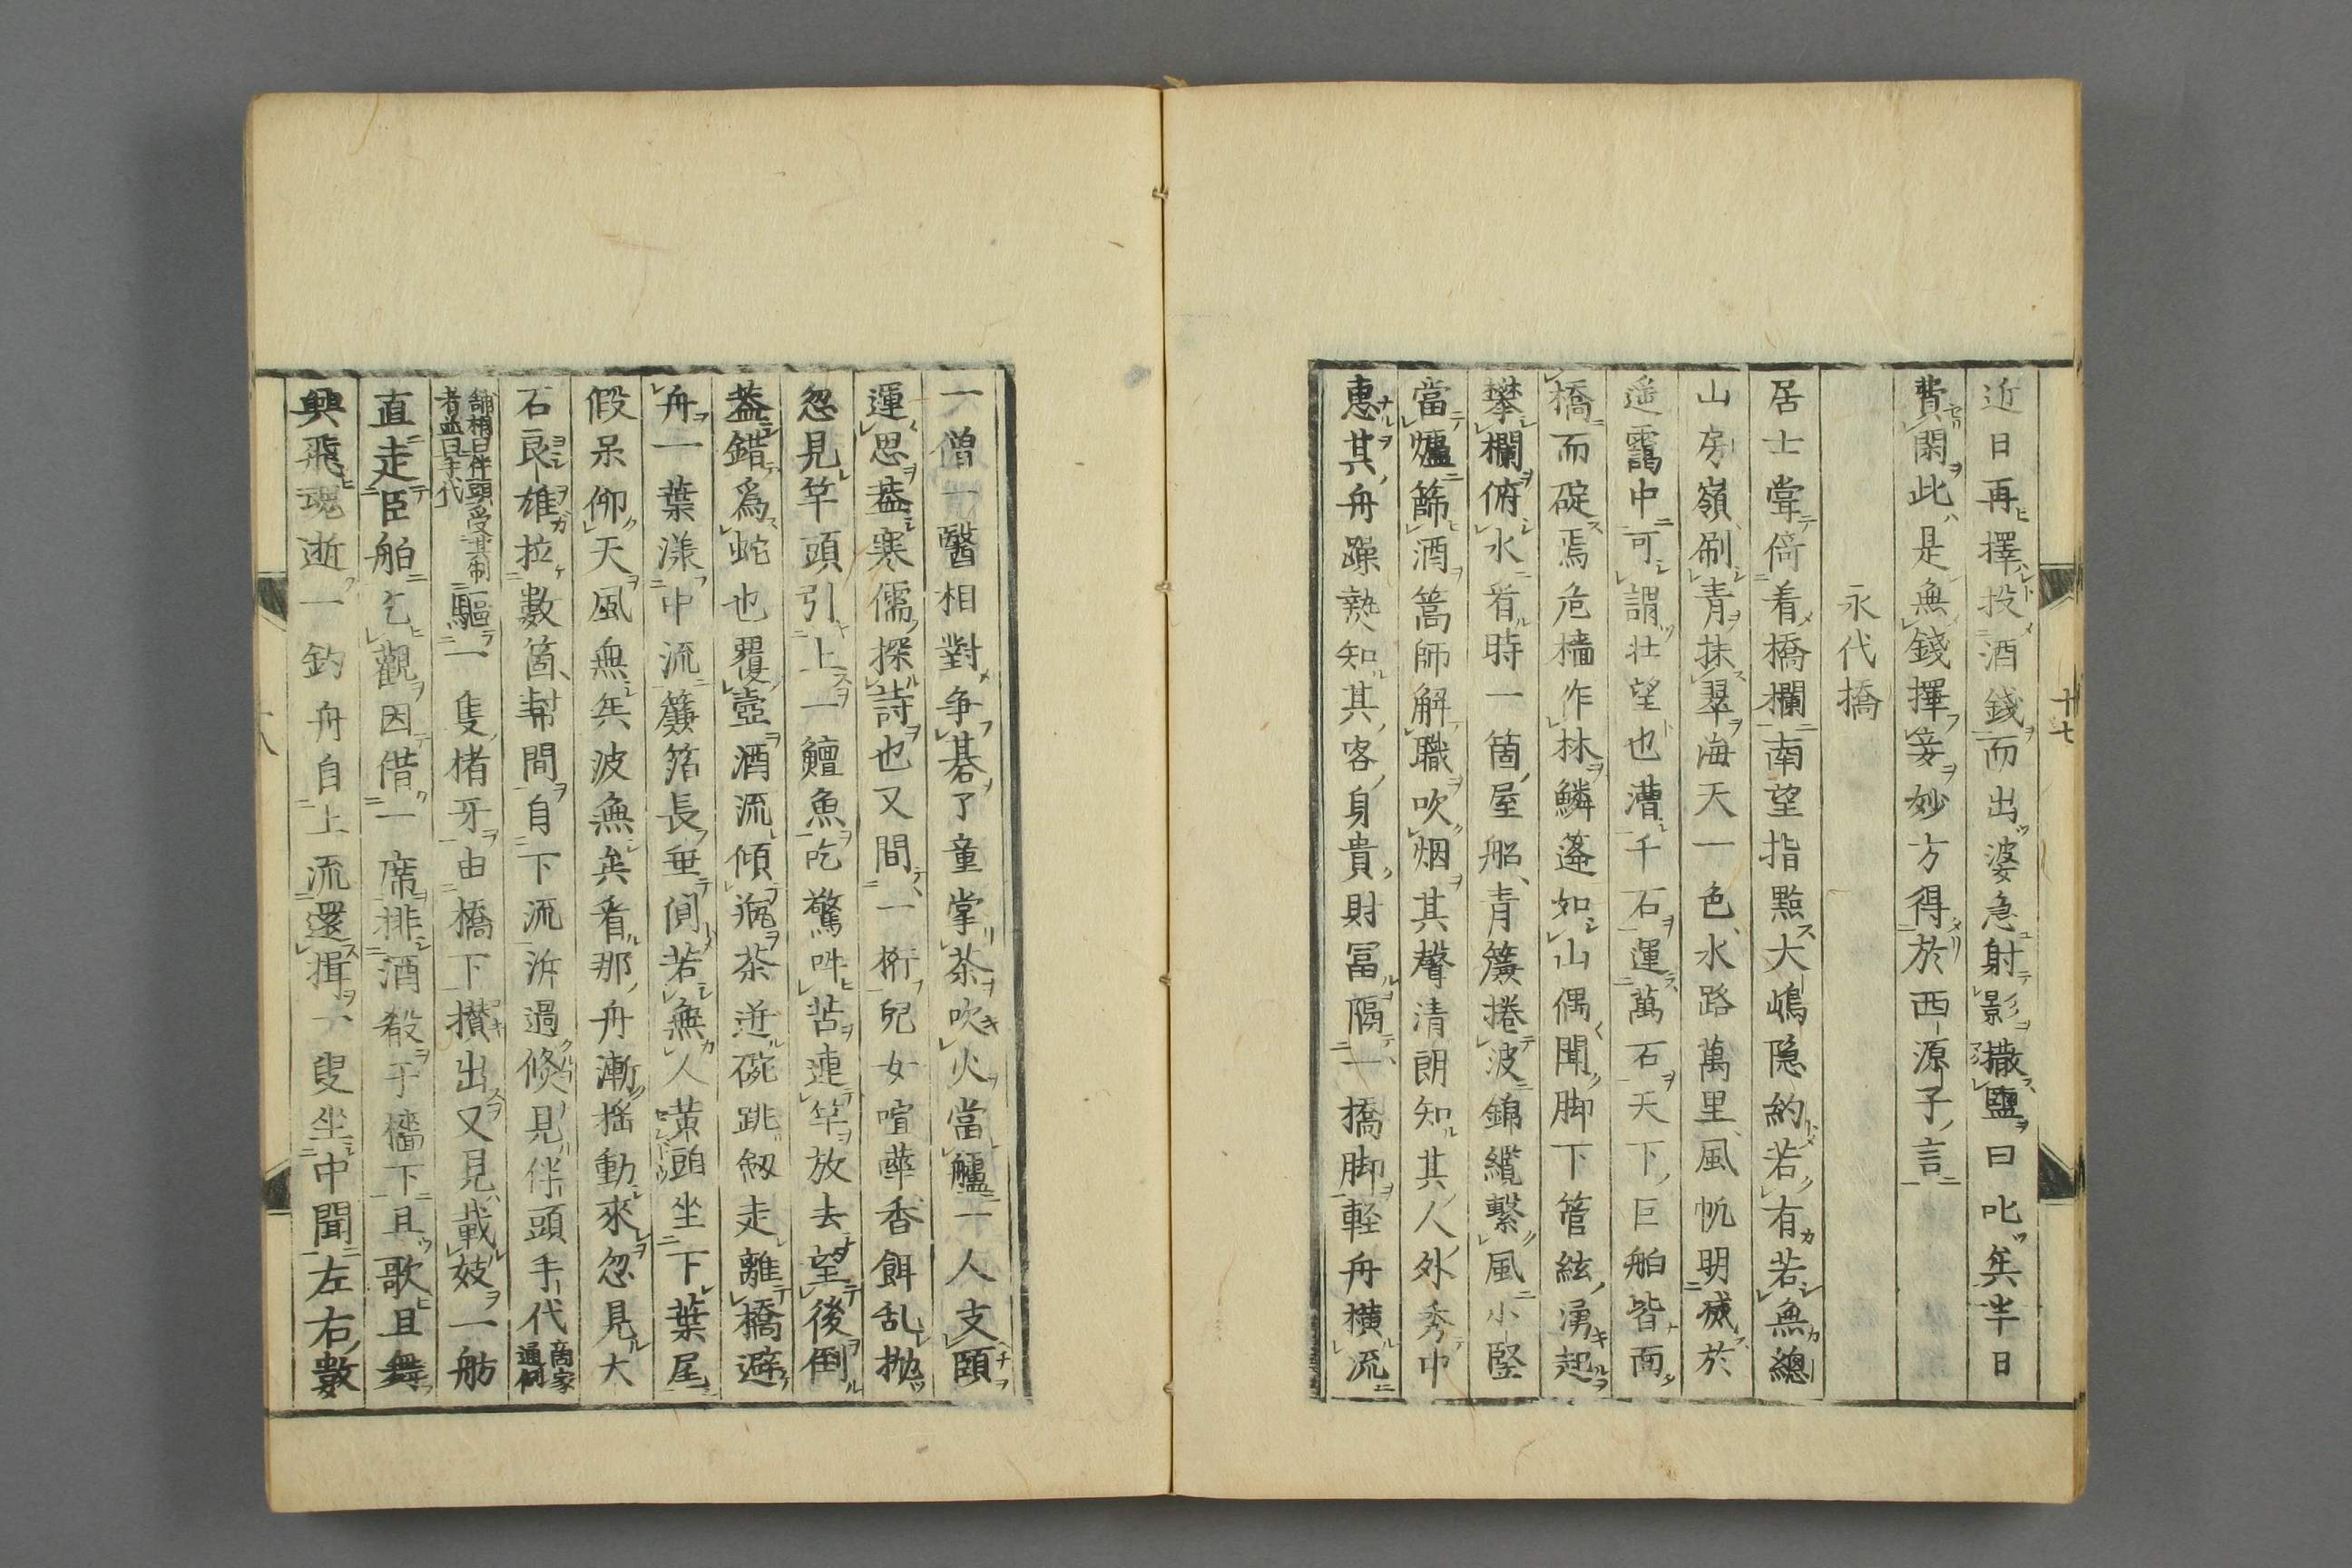 近日再擇投酒錢而出婆急射影撒鹽曰叱矣半日
費閑此是無錢擇妾妙方得於西源子言
永代橋
居士甞倚着橋欄南望指點大嶋隠約若有若無總
山房嶺刷青抹翠海天一色水路萬里風帆明滅於
遥靄中可謂壮望也漕千石運萬石天下巨舶皆面
橋而碇焉危檣作林鱗蓬如山偶聞脚下管絃湧起
攀欄俯水看時一箇屋船青簾捲波錦纜繋風小竪
當爐篩酒篙師解職吹烟其聲清朗知其人外秀中
惠其舟躁熱知其客身貴財冨隔一橋脚軽舟横流
十七
一僧一醫相對争碁了童掌茶吹火當艫一人支頤
運思葢寒儒探詩也又間一桁兒女喧譁香餌乱抛
忽見竿頭引上一鱣魚吃驚呌苦連竿放去望後倒
葢錯爲蛇也覆壺酒流傾瓶茶迸碗跳劔走離橋避
舟一葉漾中流簾箔長垂闃若無人黄頭坐下葉尾
假呆仰天風無矣波無矣看那舟漸揺動來忽見大
石良雄拉數箇幇間自下流泝過倏見伴頭手代商家通何
舖稍曰伴頭受其制者並曰手代驅一隻楮牙由橋下攅出又見載妓一舫
直走臣舶乞觀因借一席排酒殽于檣下且歌且舞
興飛魂逝一釣舟自上流還揖一叟坐中聞左右數
十八